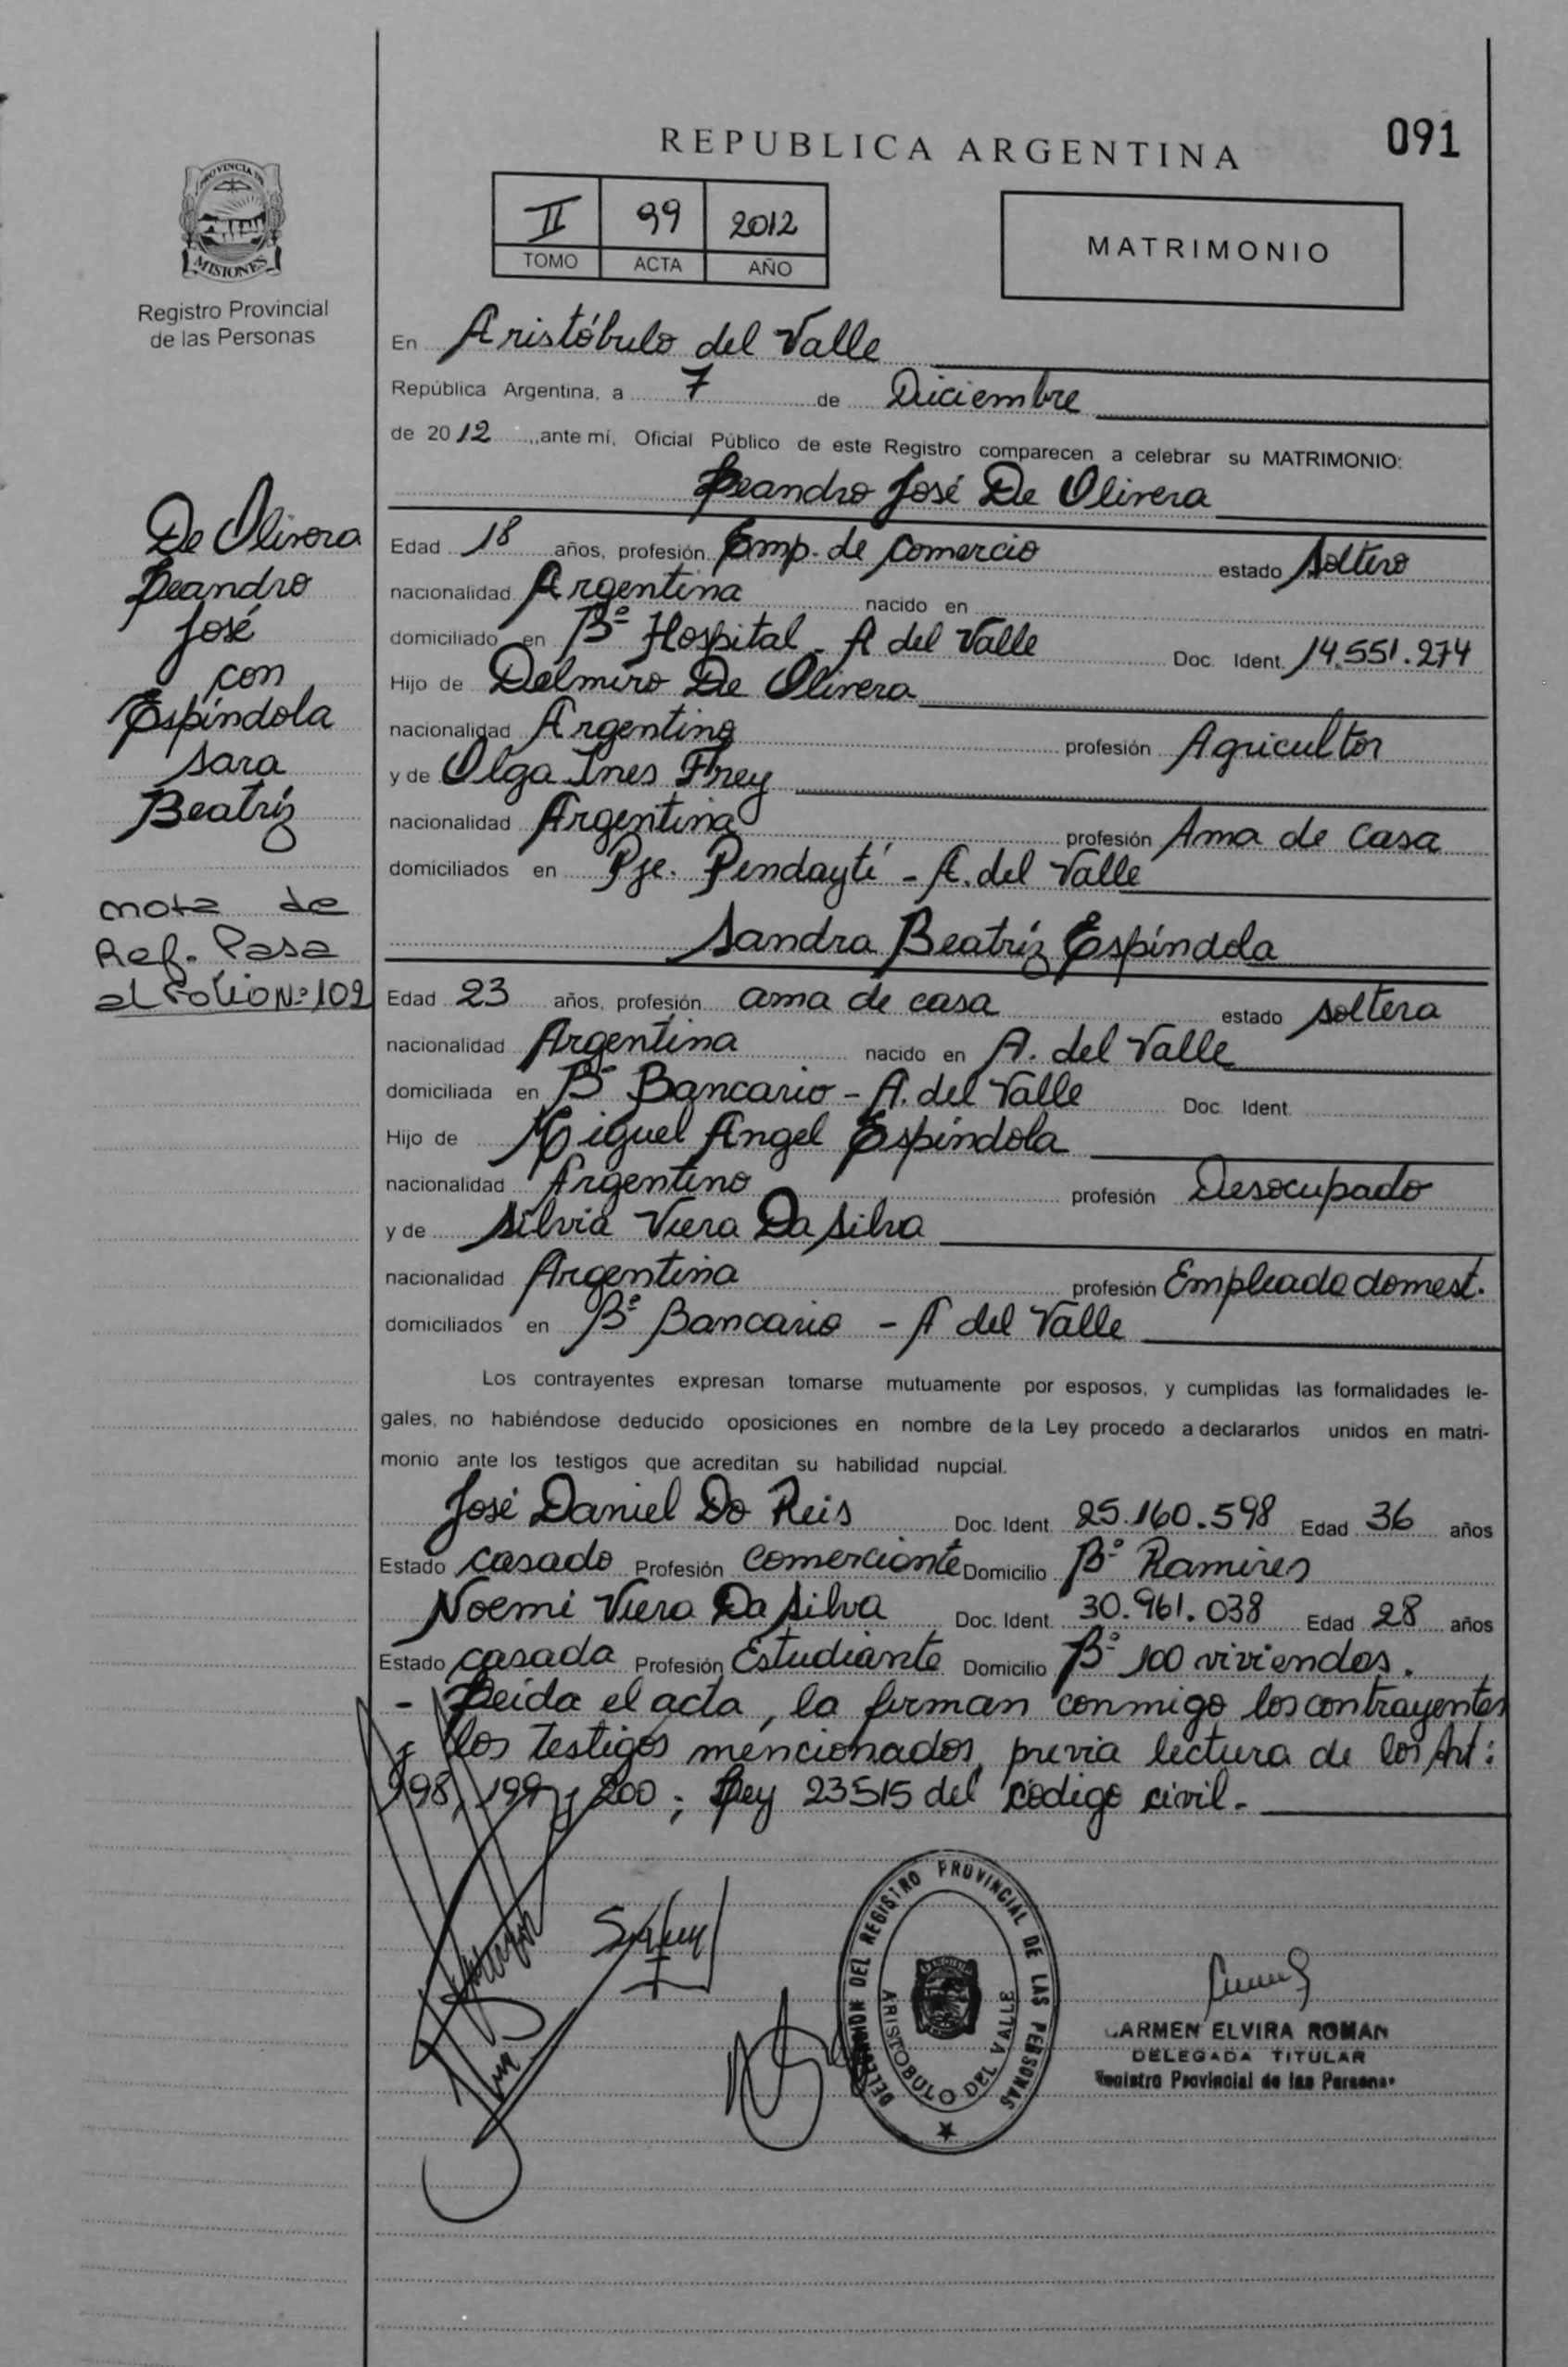 REPUBLICA ARGENTINA
091
PROVINCIA DE
MISIONES
Registro Provincial
de las Personas
II 99 2012
TOMO ACTA AÑO
MATRIMONIO
En Aristóbulo del Valle
República Argentina, a 7 de Diciembre
de 2012, ante mí, Oficial Público de este Registro comparecen a celebrar su MATRIMONIO:
Leandro José De Olivera
Edad 18 años, profesión Emp. de Comercio estado soltero
nacionalidad Argentina nacido en
domiciliado en Bº Hospital - A del Valle Doc. Ident. 14.551.274
Hijo de Delmiro De Olivera
nacionalidad Argentino profesión Agricultor
y de Olga Ines Frey
nacionalidad Argentina profesión Ama de casa
domiciliados en Pje. Pendaytí - A. del Valle
Sandra Beatríz Espíndola
Edad 23 años, profesión ama de casa estado soltera
nacionalidad Argentina nacido en A. del Valle
domiciliada en Bº Bancario - A. del Valle Doc. Ident.
Hijo de Miguel Angel Espíndola
nacionalidad Argentino profesión Desocupado
y de Silvia Viera Da Silva
nacionalidad Argentina profesión Empleada domest.
domiciliados en Bº Bancario - A del Valle
Los contrayentes expresan tomarse mutuamente por esposos, y cumplidas las formalidades le-
gales, no habiéndose deducido oposiciones en nombre de la Ley procedo a declararlos unidos en matri-
monio ante los testigos que acreditan su habilidad nupcial.
José Daniel Do Reis Doc. Ident. 25.160.598 Edad 36 años
Estado casado Profesión Comerciante Domicilio Bº Ramires
Noemi Viera Da Silva Doc. Ident. 30.961.038 Edad 28 años
Estado casada Profesión Estudiante Domicilio Bº 100 viviendas.
- Leída el acta, la firman conmigo los contrayentes
y los testigos mencionados, previa lectura de los Art:
198, 199 y 200; Ley 23515 del código civil.-
De Olivera
Leandro
José
con
Espíndola
Sara
Beatríz
nota de
Ref. Pasa
al Folio Nº 102
DELEGACION DEL REGISTRO PROVINCIAL DE LAS PERSONAS
ARISTOBULO DEL VALLE
CARMEN ELVIRA ROMAN
DELEGADA TITULAR
Registro Provincial de las Personas